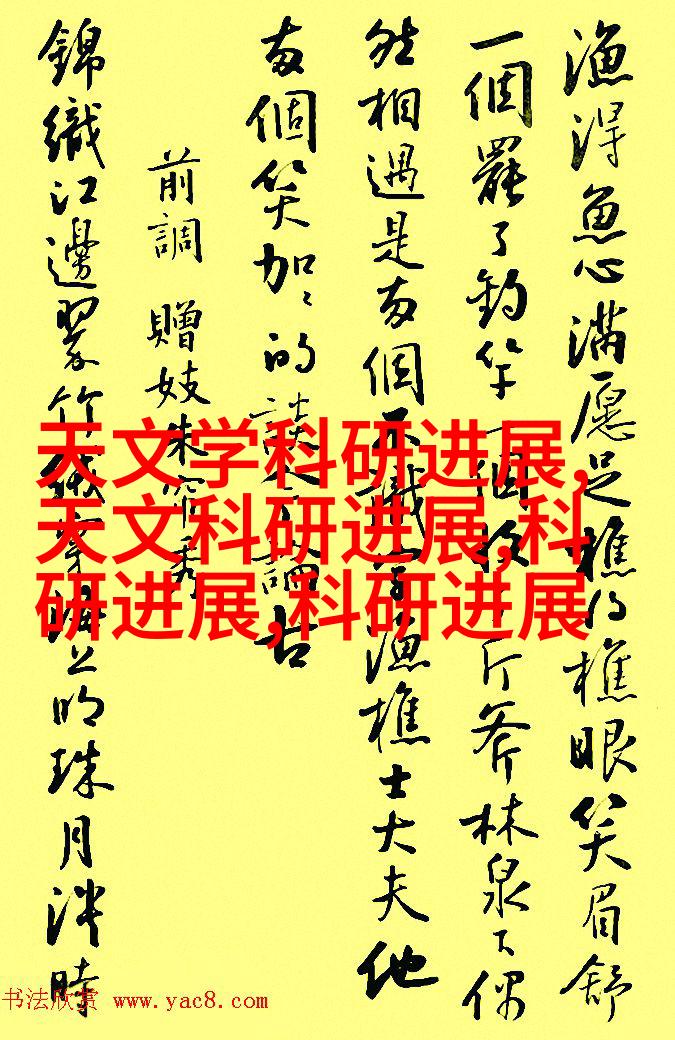 漁得魚心滿愿足樵得樵眼笑眉舒
一個罷了釣竿一個收了斤斧林泉下偶
然相遇是两個不識字漁樵士大夫他
两個笑加加的談今論古
前調 贈妓朱帘秀
錦織江邊翠竹絨穿海上明珠月淡時
天文学科研进展,
天文科研进展,科
研进展,科研进展
书法欣赏 www.yac8.com